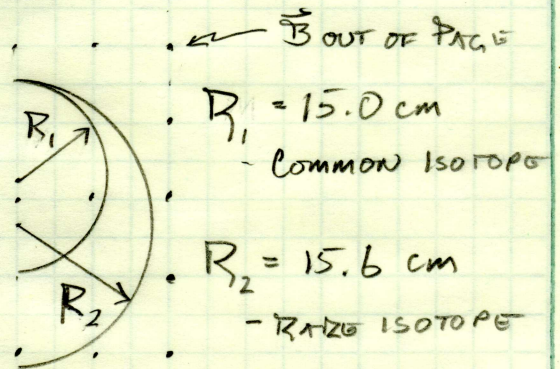 B⃗ OUT OF PAGE
R₁
R₁ = 15.0 cm
- COMMON ISOTOPE
R₂
R₂ = 15.6 cm
- RARE ISOTOPE